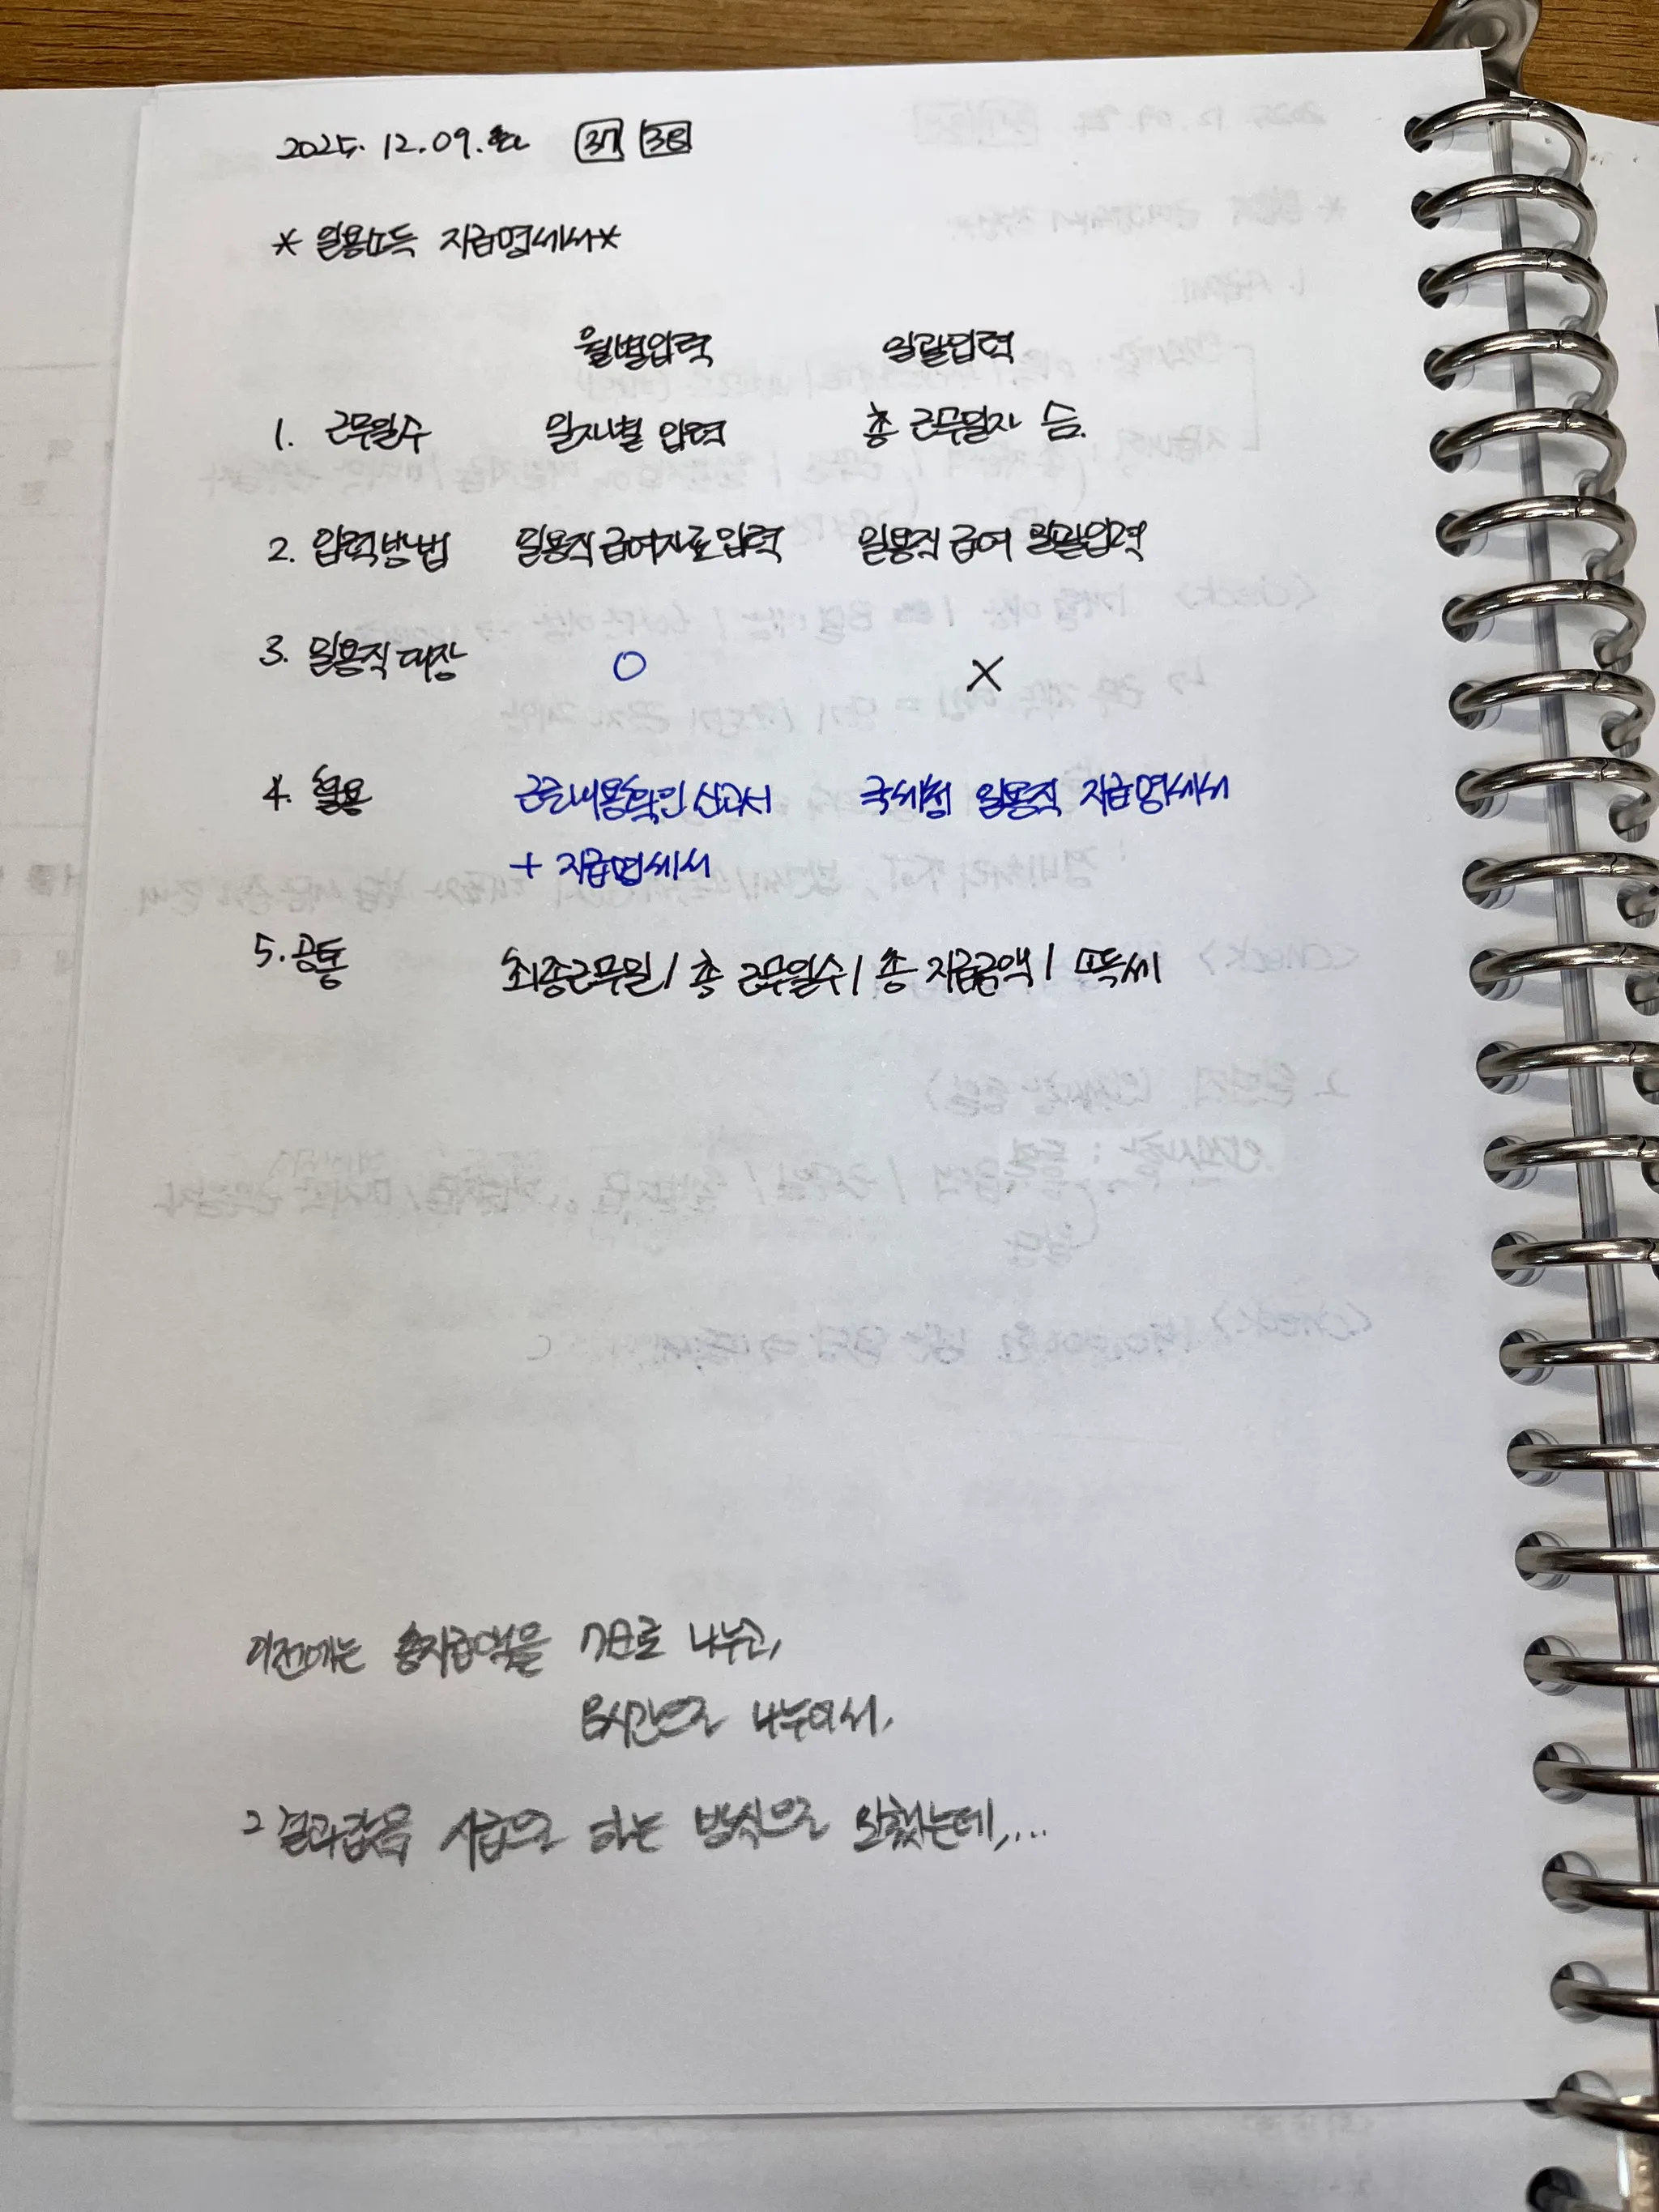 2025. 12. 09. 화 37 38
* 일용소득 지급명세서 *
월별입력 일괄입력
1. 근무일수 일자별 입력 총 근무일자 숫.
2. 입력방법 일용직급여자료입력 일용직급여 일괄입력
3. 일용직대장 O X
4. 활용 근로내용확인신고서 국세청 일용직 지급명세서
+ 지급명세서
5. 공통 최종근무일 / 총 근무일수 / 총 지급금액 / 소득세
이전에는 총지급액을 7日로 나누고,
8시간으로 나누어서,
그 결과값을 시급으로 하는 방식으로 했는데,...